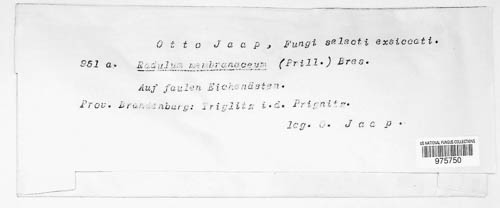 Otto Jaap, Fungi selecti exsiccati.
951 a. Radulum membranaceum (Brill.) Bres.
Auf faulen Eichenästen.
Prov. Brandenburg: Triglitz i.d. Prignitz.
leg. O. Jaap.
US NATIONAL FUNGUS COLLECTIONS
975750